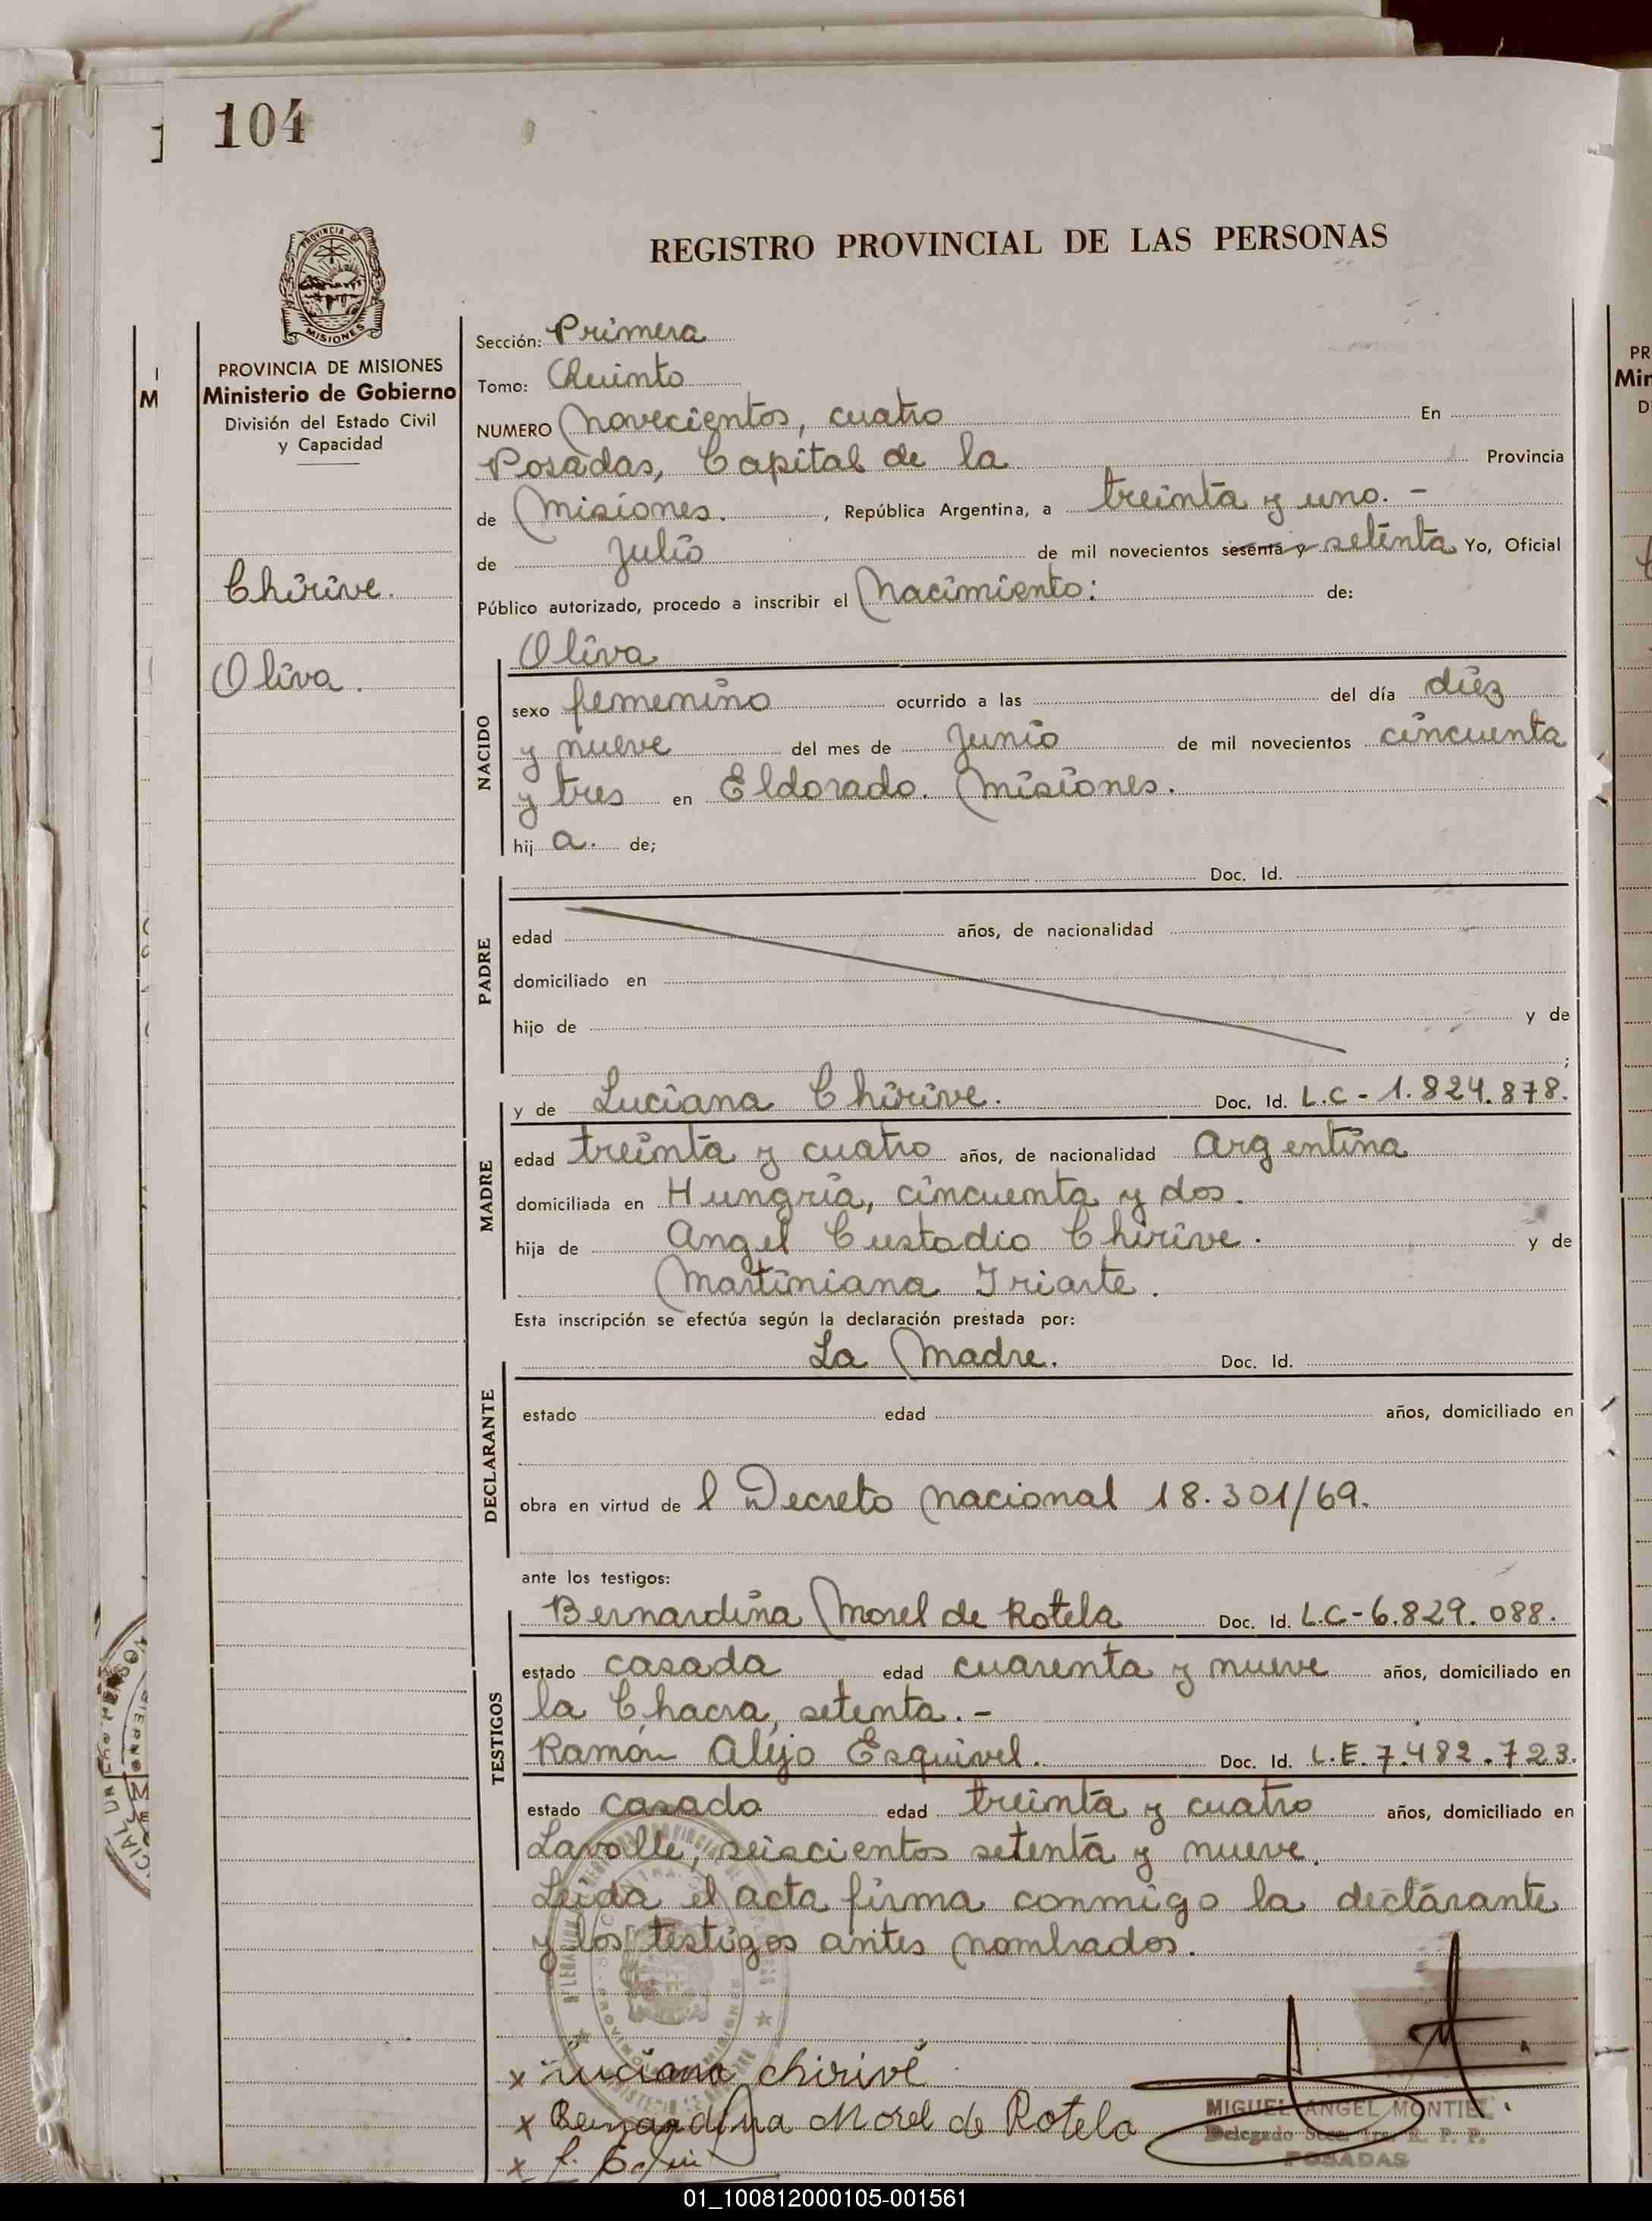 104
PROVINCIA DE
MISIONES
REGISTRO PROVINCIAL DE LAS PERSONAS
PROVINCIA DE MISIONES
Ministerio de Gobierno
División del Estado Civil
y Capacidad
Chirive.
Oliva.
Sección: Primera
Tomo: Quinto
NUMERO Novecientos, cuatro En
Posadas, Capital de la Provincia
de Misiones. , República Argentina, a treinta y uno. -
de Julio de mil novecientos sesenta y setenta Yo, Oficial
Público autorizado, procedo a inscribir el Nacimiento: de:
Oliva
NACIDO
sexo femenino ocurrido a las del día diez
y nueve del mes de Junio de mil novecientos cincuenta
y tres en Eldorado. Misiones.
hij a. de;
Doc. Id.
PADRE
edad años, de nacionalidad
domiciliado en
hijo de y de
;
y de Luciana Chirive. Doc. Id. L.C - 1.824.878.
MADRE
edad treinta y cuatro años, de nacionalidad Argentina
domiciliada en Hungría, cincuenta y dos.
hija de Angel Custodio Chirive. y de
Martiniana Iriarte.
Esta inscripción se efectúa según la declaración prestada por:
La Madre. Doc. Id.
DECLARANTE
estado edad años, domiciliado en
obra en virtud de l Decreto Nacional 18.301/69.
ante los testigos:
Bernardina Morel de Rotela Doc. Id. L.C-6.829.088.
TESTIGOS
estado casada edad cuarenta y nueve años, domiciliado en
la Chacra, setenta.-
Ramón Alejo Esquivel. Doc. Id. L.E.7.482.723.
estado casado edad treinta y cuatro años, domiciliado en
Lavalle, seiscientos setenta y nueve.
Leída el acta firma conmigo la declarante
y los testigos antes nombrados.
x Luciana chirivé
x Bernardina Morel de Rotela
x
MIGUEL ANGEL MONTIEL
Delegado Secc. 1ra. R. P. P.
POSADAS
01_100812000105-001561